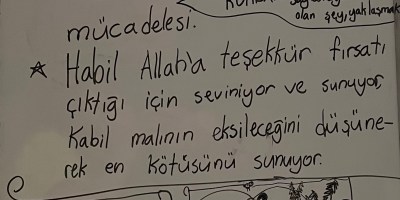 olan şey, yaklaşmak
mücadelesi.
☆ Habil Allah'a teşekkür fırsatı
çıktığı için seviniyor ve sunuyor,
Kabil malının eksileceğini düşüne-
rek en kötüsünü sunuyor.